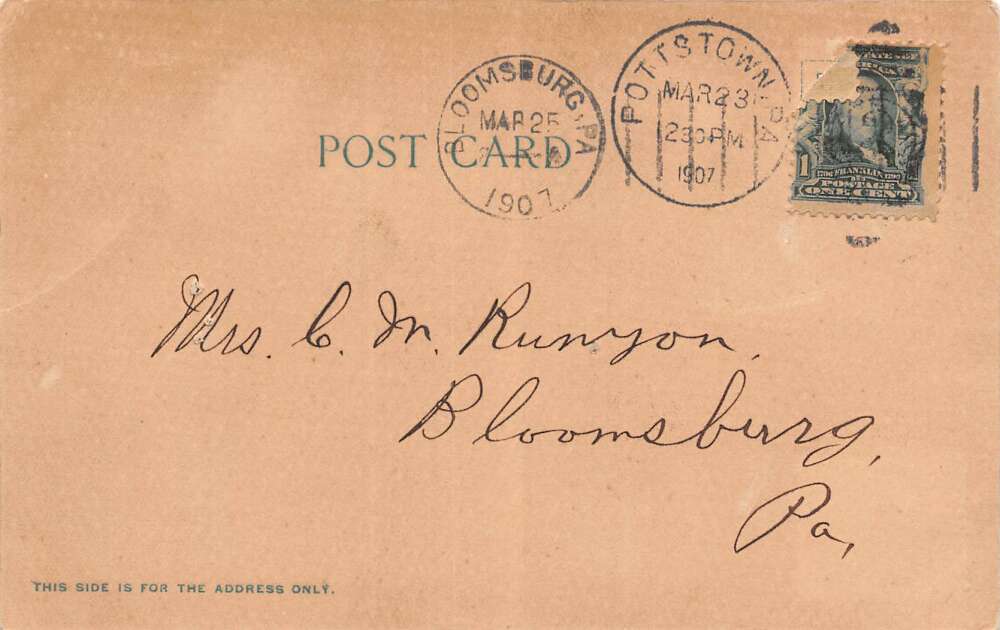 BLOOMSBURG, PA
MAR 25
1907
POTTSTOWN, PA
MAR 23
2 30 PM
1907
POST CARD
1
1706 FRANKLIN 1790
POSTAGE
ONE CENT
Mrs. C. M. Runyon.
Bloomsburg,
Pa,
THIS SIDE IS FOR THE ADDRESS ONLY.